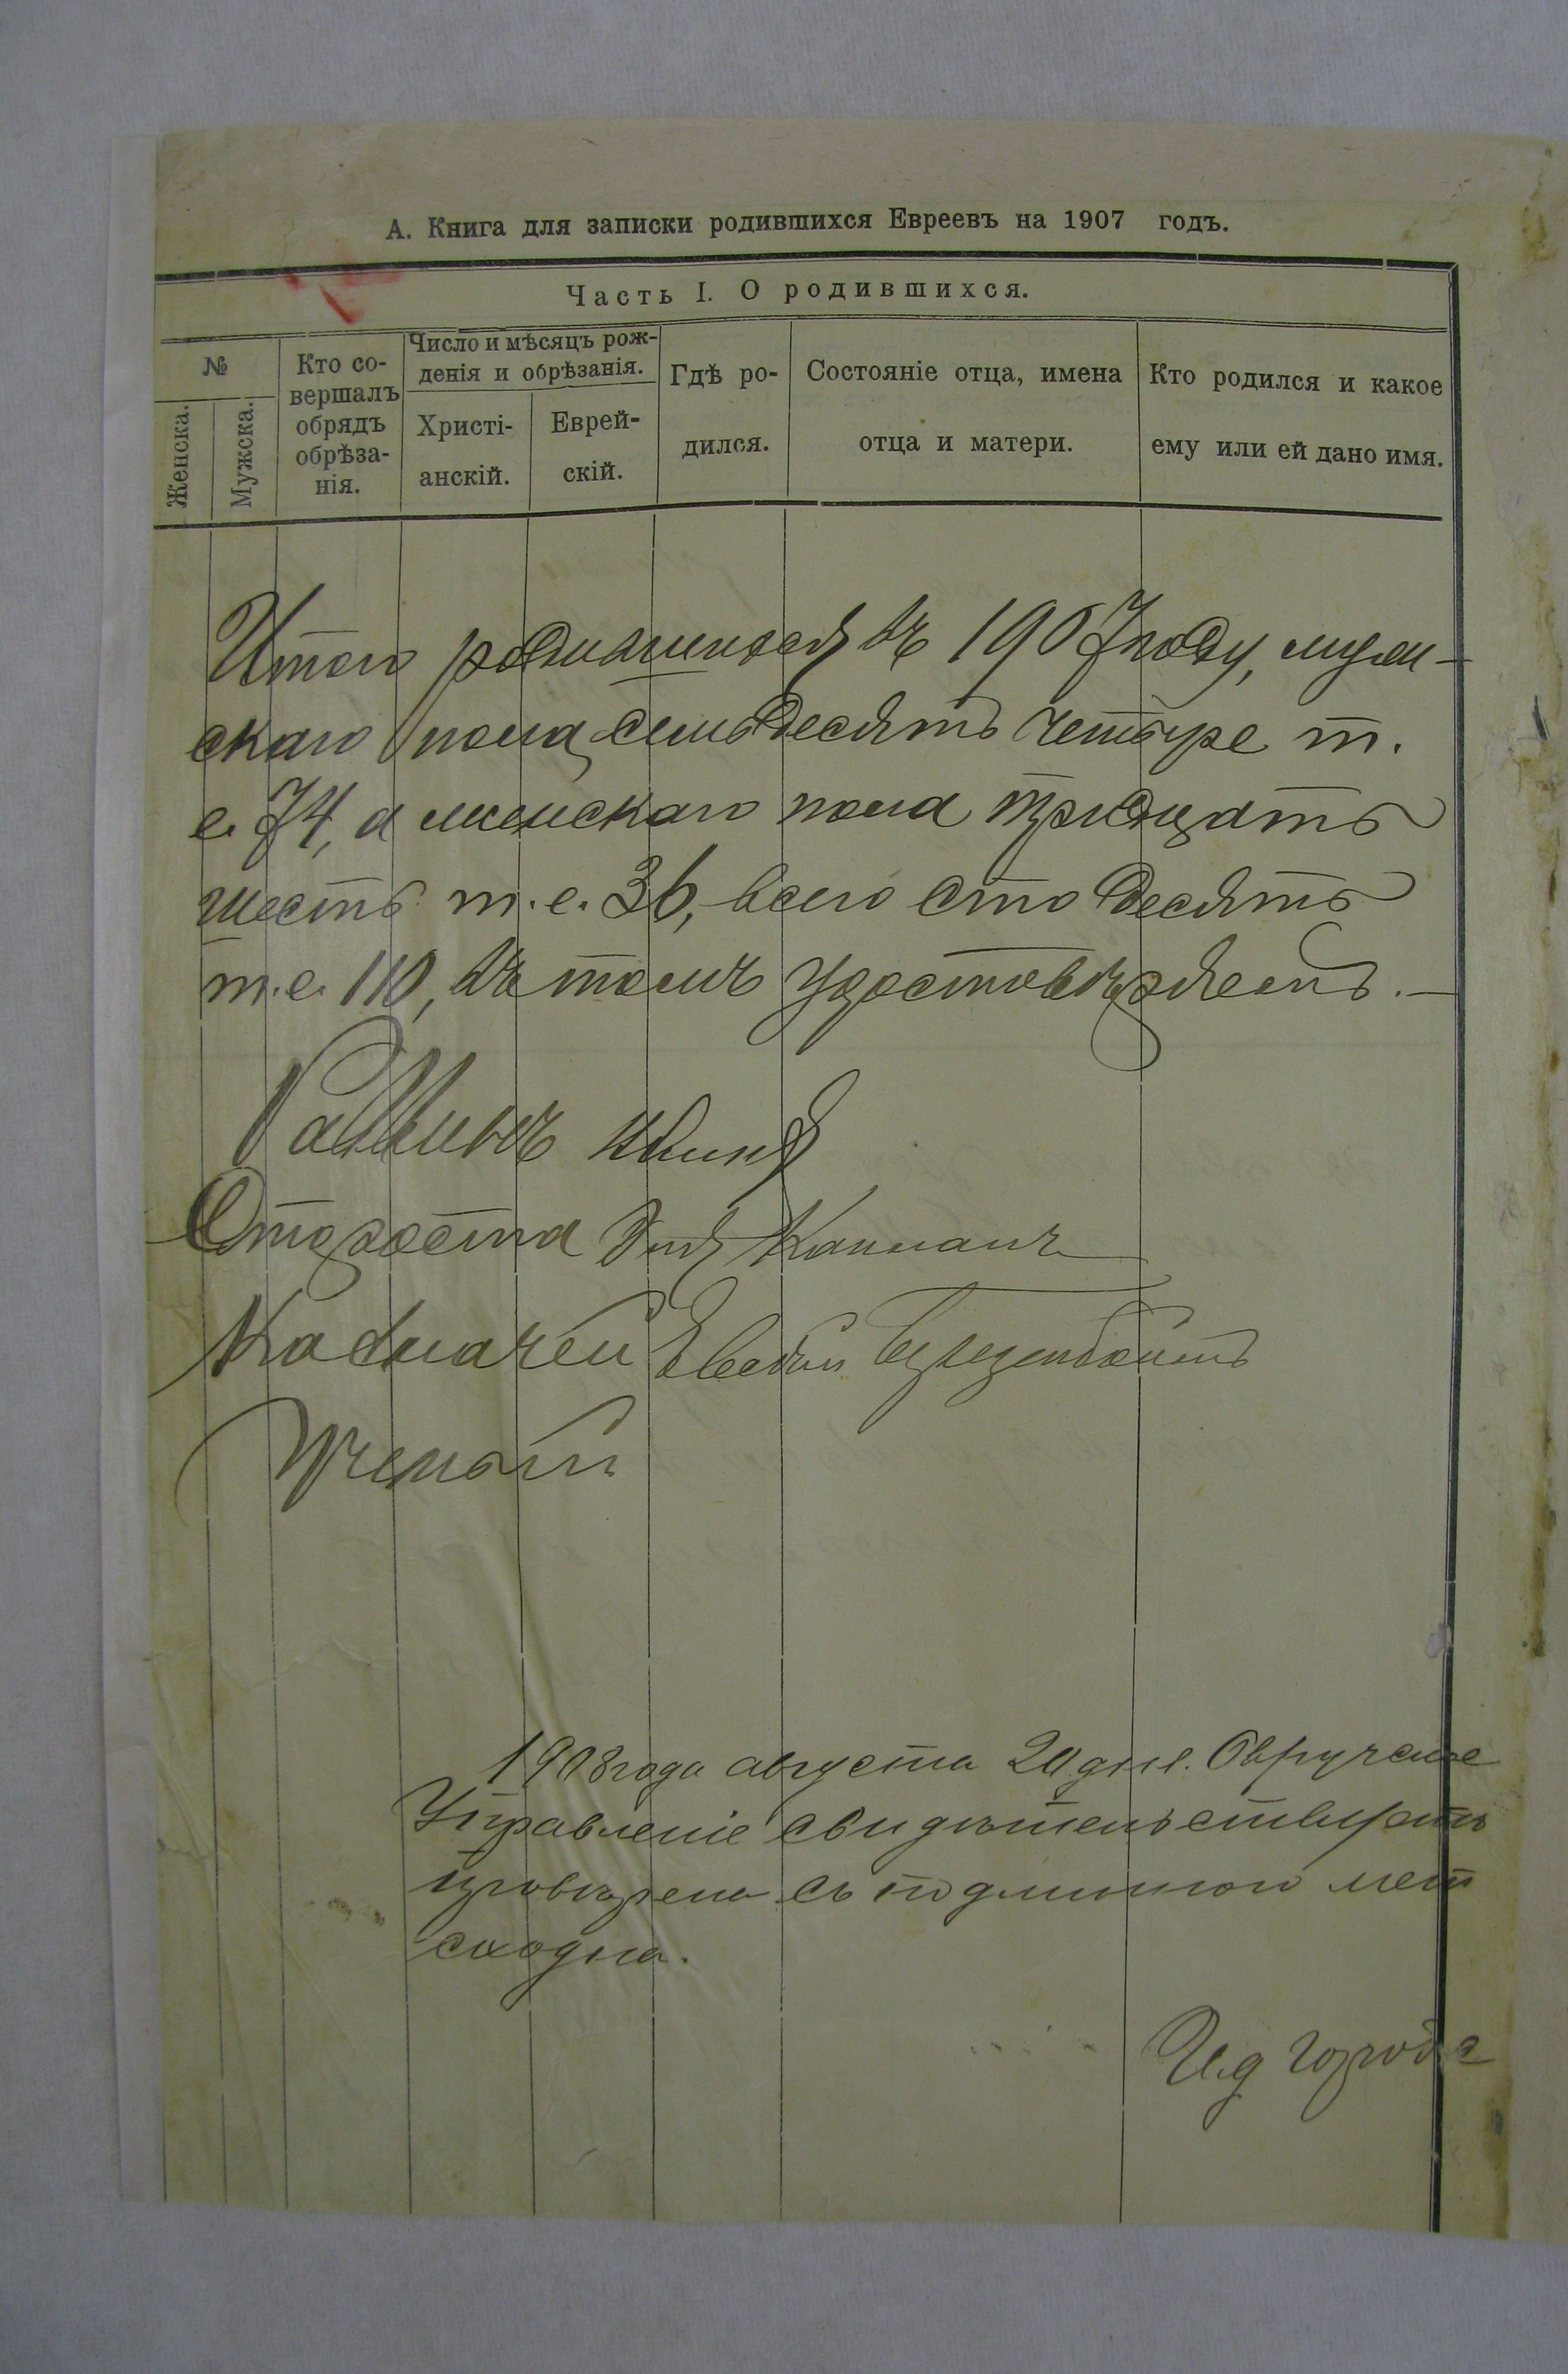 А. Книга для записки родившихся Евреевъ на 1907 годъ.
Часть I. О родившихся.
№
Женска.
Мужска.
Кто со-
вершалъ
обрядъ
обрѣза-
нія.
Число и мѣсяцъ рож-
денія и обрѣзанія.
Христі-
анскій.
Еврей-
скій.
Гдѣ ро-
дился.
Состояніе отца, имена
отца и матери.
Кто родился и какое
ему или ей дано имя.
Итого родившихся въ 1907 году, муж-
скаго пола семьдесять четыре т.
е. 74, а женскаго пола тридцать
шесть т.е. 36, всего сто десять
т.е. 110, въ томъ удостовѣряемъ.—
Раввинъ
Староста Капланъ
Казначей
Ученый
1908 года августа 20 дня. Овручское
Управленіе свидѣтельствуетъ
провѣрена съ подлинною мет
сходна.
И.д Городс